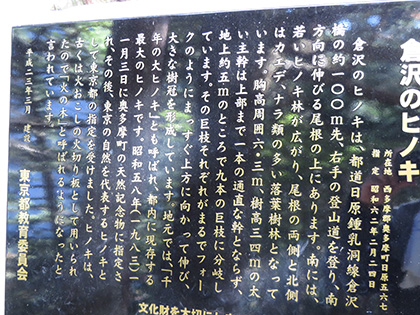 倉沢のヒノキ
所在地 西多摩郡奥多摩町日原五六七
指定 昭和六二年二月二四日
倉沢のヒノキは、都道日原鍾乳洞線倉沢
橋の約一〇〇m先、右手の登山道を登り、南
方向に伸びる尾根の上にあります。南には、
若いヒノキ林が広がり、尾根の両側と北側
はカエデ、ナラ類の多い落葉樹林となって
います。胸高周囲六・三m、樹高三四mの太
い主幹は上部まで一本の通直な幹とならず、
地上約五mのところで九本の巨枝に分岐し
ています。その巨枝それぞれがまるでフォー
クのようにまっすぐ上方に向かって伸び、
大きな樹冠を形成しています。地元では、「千
年の大ヒノキ」とも呼ばれ、都内に現存する
最大のヒノキです。昭和五八年(一九八三)一
一月三日に奥多摩町の天然記念物に指定さ
れ、その後、東京の自然を代表するヒノキと
して東京都の指定を受けました。ヒノキは、
古くは火おこしの火切り板として用いられ
たので「火の木」と呼ばれるようになったと
言われています。
平成二三年三月 建設
東京都教育委員会
文化財を大切にし